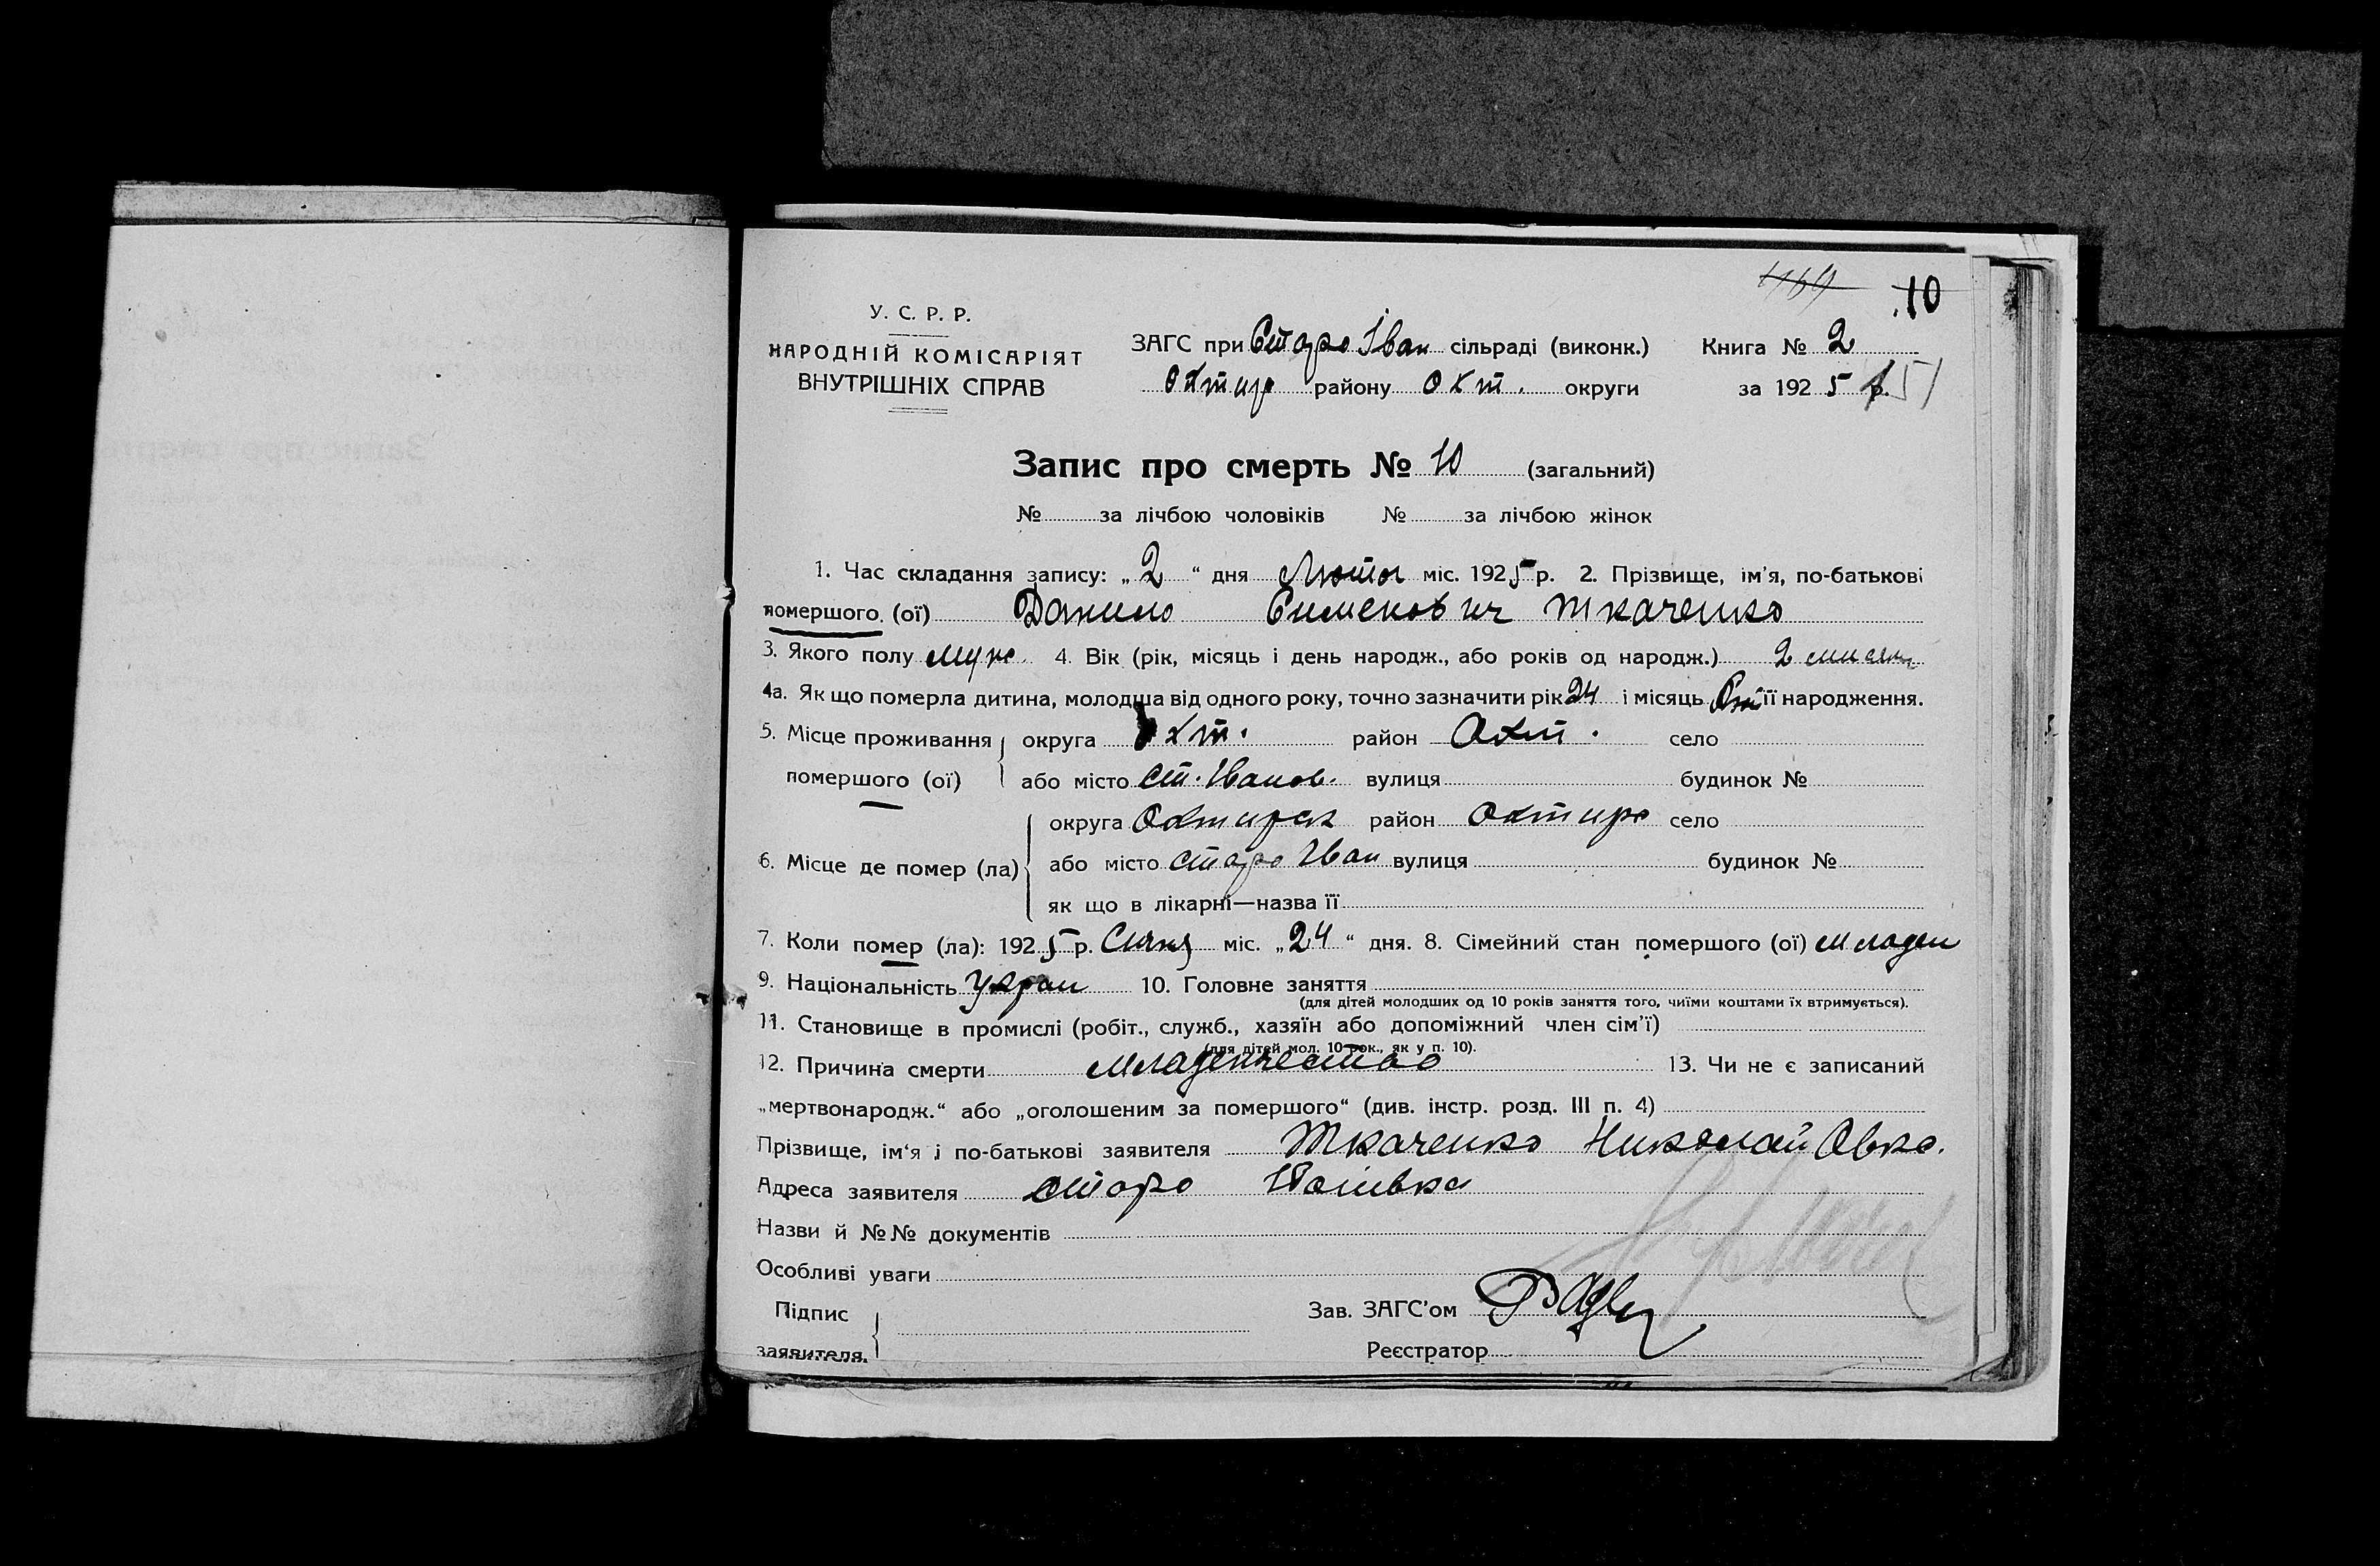 1169 10
У. С. Р. Р.
НАРОДНІЙ КОМІСАРІЯТ
ВНУТРІШНІХ СПРАВ
ЗАГС при Старо Іван сільраді (виконк.) Книга № 2
Охтир району Охт. округи за 1925 р. 51
Запис про смерть № 10 (загальний)
№ за лічбою чоловіків № за лічбою жінок
1. Час складання запису: „2“ дня Лютог міс. 1925 р. 2. Прізвище, ім’я, по-батькові
помершого (ої) Данило Сименович Ткаченко
3. Якого полу муж 4. Вік (рік, місяць і день народж., або років од народж.) 2
4а. Як що померла дитина, молодша від одного року, точно зазначити рік 24 і місяць її народження.
5. Місце проживання помершого (ої) округа Охт. район Охт. село
або місто Ст. Іванов. вулиця будинок №
6. Місце де помер (ла) округа Охтирск район Охтир село
або місто Старо Іван вулиця будинок №
як що в лікарні—назва її
7. Коли помер (ла): 1925 р. Січня міс. „24“ дня. 8. Сімейний стан помершого (ої) младен
9. Національність Украп 10. Головне заняття
(для дітей молодших од 10 років заняття того, чиїми коштами їх втримується).
11. Становище в промислі (робіт., служб., хазяїн або допоміжний член сім’ї)
(для дітей мол. 10 рок., як у п. 10).
12. Причина смерти младенчество 13. Чи не є записаний
„мертвонародж.“ або „оголошеним за помершого“ (див. інстр. розд. III п. 4)
Прізвище, ім’я і по-батькові заявителя Ткаченко Николай
Адреса заявителя Старо Іванівка
Назви й №№ документів
Особливі уваги
Підпис заявителя.
Зав. ЗАГС’ом
Реєстратор